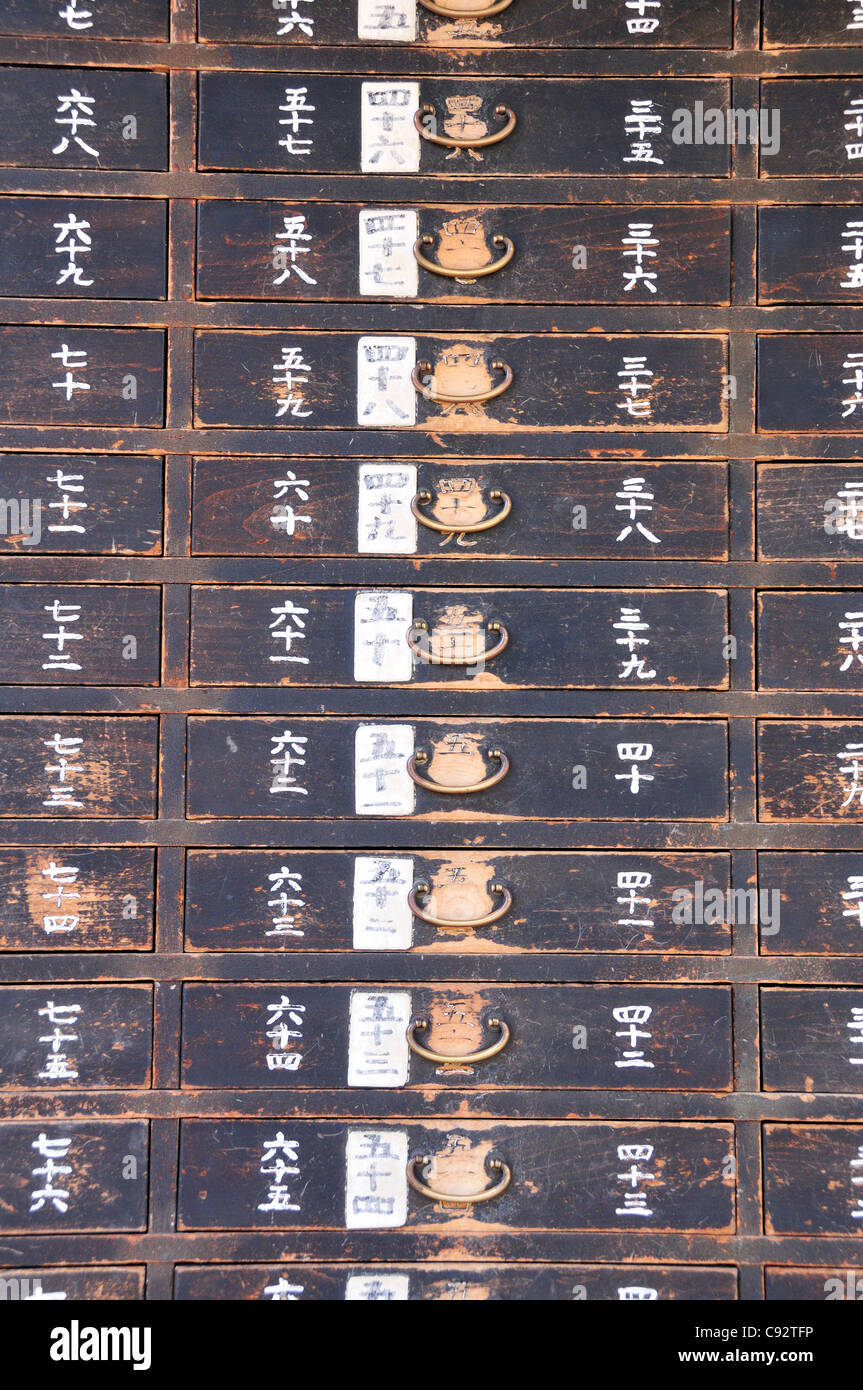 六十八 五十七 四十六 三十五
六十九 五十八 四十七 三十六
七十 五十九 四十八 三十七
七十一 六十 四十九 三十八
七十二 六十一 五十 三十九
七十三 六十二 五十一 四十
七十四 六十三 五十二 四十一
七十五 六十四 五十三 四十二
七十六 六十五 五十四 四十三
alamy
Image ID: C92TFP
www.alamy.com